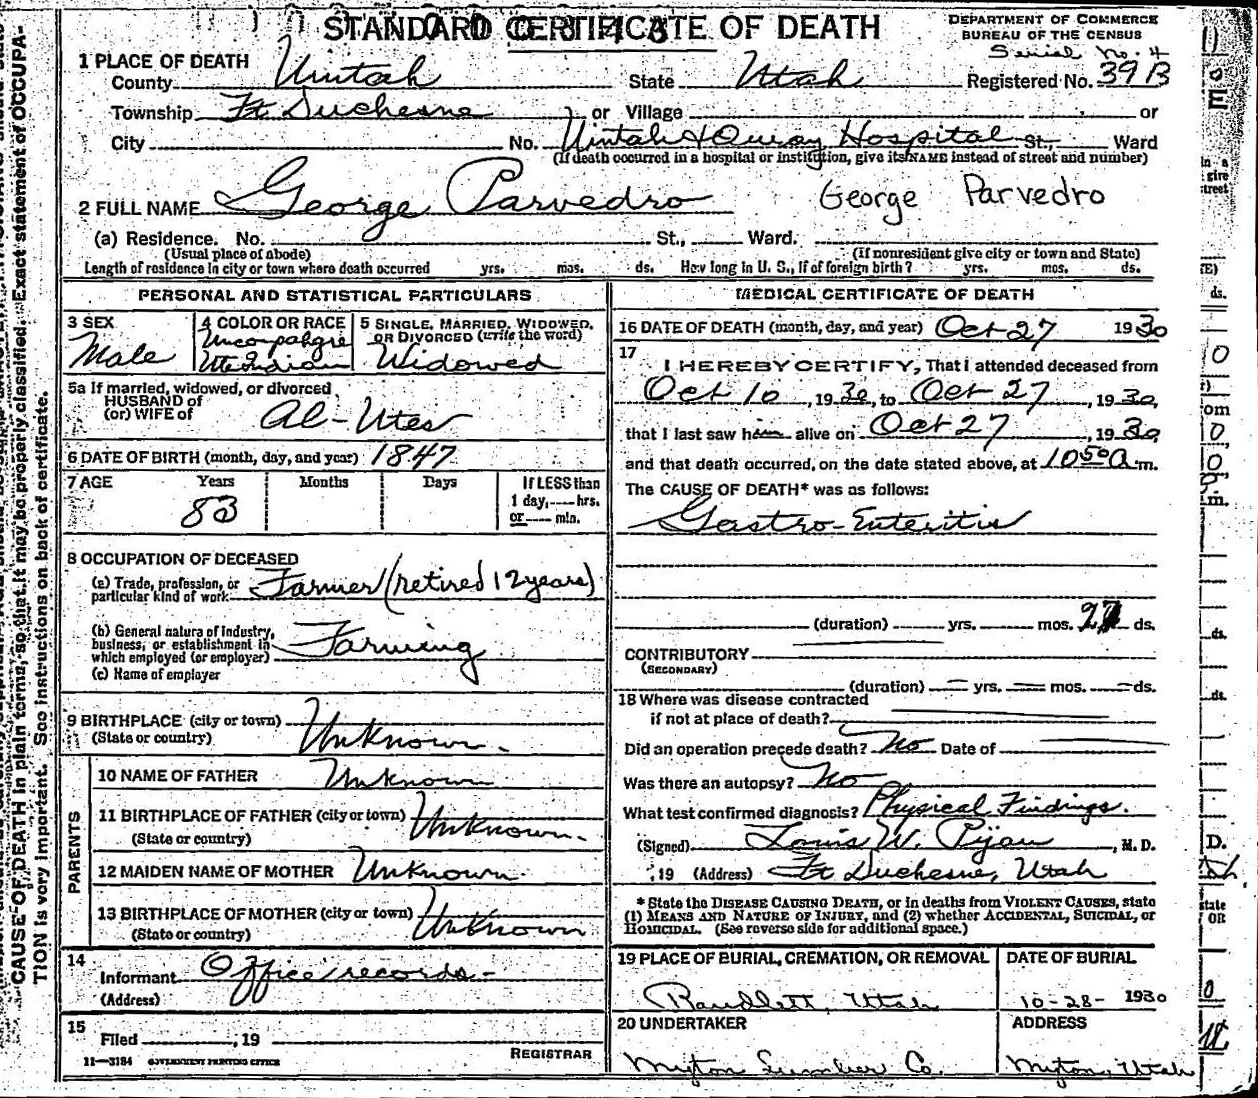 STANDARD CERTIFICATE OF DEATH
DEPARTMENT OF COMMERCE
BUREAU OF THE CENSUS
Serial No. 4
1 PLACE OF DEATH
County Uintah State Utah Registered No. 39B
Township Ft Duchesne or Village or
City No. Uintah & Ouray Hospital St., Ward
(If death occurred in a hospital or institution, give its NAME instead of street and number)
2 FULL NAME George Parvedro George Parvedro
(a) Residence. No. St., Ward.
(Usual place of abode) (If nonresident give city or town and State)
Length of residence in city or town where death occurred yrs. mos. ds. How long in U. S., if of foreign birth? yrs. mos. ds.
PERSONAL AND STATISTICAL PARTICULARS
3 SEX
Male
4 COLOR OR RACE
Uncompahgre
Ute Indian
5 SINGLE, MARRIED, WIDOWED,
OR DIVORCED (write the word)
Widowed
5a If married, widowed, or divorced
HUSBAND of
(or) WIFE of Al-Utes
6 DATE OF BIRTH (month, day, and year) 1847
7 AGE Years Months Days If LESS than
1 day, hrs.
or min.
83
8 OCCUPATION OF DECEASED
(a) Trade, profession, or
particular kind of work Farmer (retired 12 years)
(b) General nature of industry,
business, or establishment in
which employed (or employer) Farming
(c) Name of employer
9 BIRTHPLACE (city or town)
(State or country) Unknown.
PARENTS
10 NAME OF FATHER Unknown
11 BIRTHPLACE OF FATHER (city or town) Unknown.
(State or country)
12 MAIDEN NAME OF MOTHER Unknown.
13 BIRTHPLACE OF MOTHER (city or town) Unknown
(State or country)
14
Informant Office records-
(Address)
15
Filed , 19
REGISTRAR
11—3184 GOVERNMENT PRINTING OFFICE
MEDICAL CERTIFICATE OF DEATH
16 DATE OF DEATH (month, day, and year) Oct 27 1930
17
I HEREBY CERTIFY, That I attended deceased from
Oct 10, 1930, to Oct 27, 1930,
that I last saw him alive on Oct 27, 1930,
and that death occurred, on the date stated above, at 10 50 a m.
The CAUSE OF DEATH* was as follows:
Gastro-Enteritis
(duration) yrs. mos. 27 ds.
CONTRIBUTORY
(SECONDARY)
(duration) yrs. mos. ds.
18 Where was disease contracted
if not at place of death?
Did an operation precede death? No Date of
Was there an autopsy? No
What test confirmed diagnosis? Physical Findings.
(Signed) Louis W. Pijan, M. D.
, 19 (Address) Ft Duchesne, Utah
* State the DISEASE CAUSING DEATH, or in deaths from VIOLENT CAUSES, state
(1) MEANS AND NATURE OF INJURY, and (2) whether ACCIDENTAL, SUICIDAL, or
HOMICIDAL. (See reverse side for additional space.)
19 PLACE OF BURIAL, CREMATION, OR REMOVAL
Randlett, Utah
DATE OF BURIAL
10-28- 1930
20 UNDERTAKER
Myton Lumber Co.
ADDRESS
Myton, Utah
CAUSE OF DEATH in plain terms, so that it may be properly classified. Exact statement of OCCUPA-
TION is very important. See instructions on back of certificate.